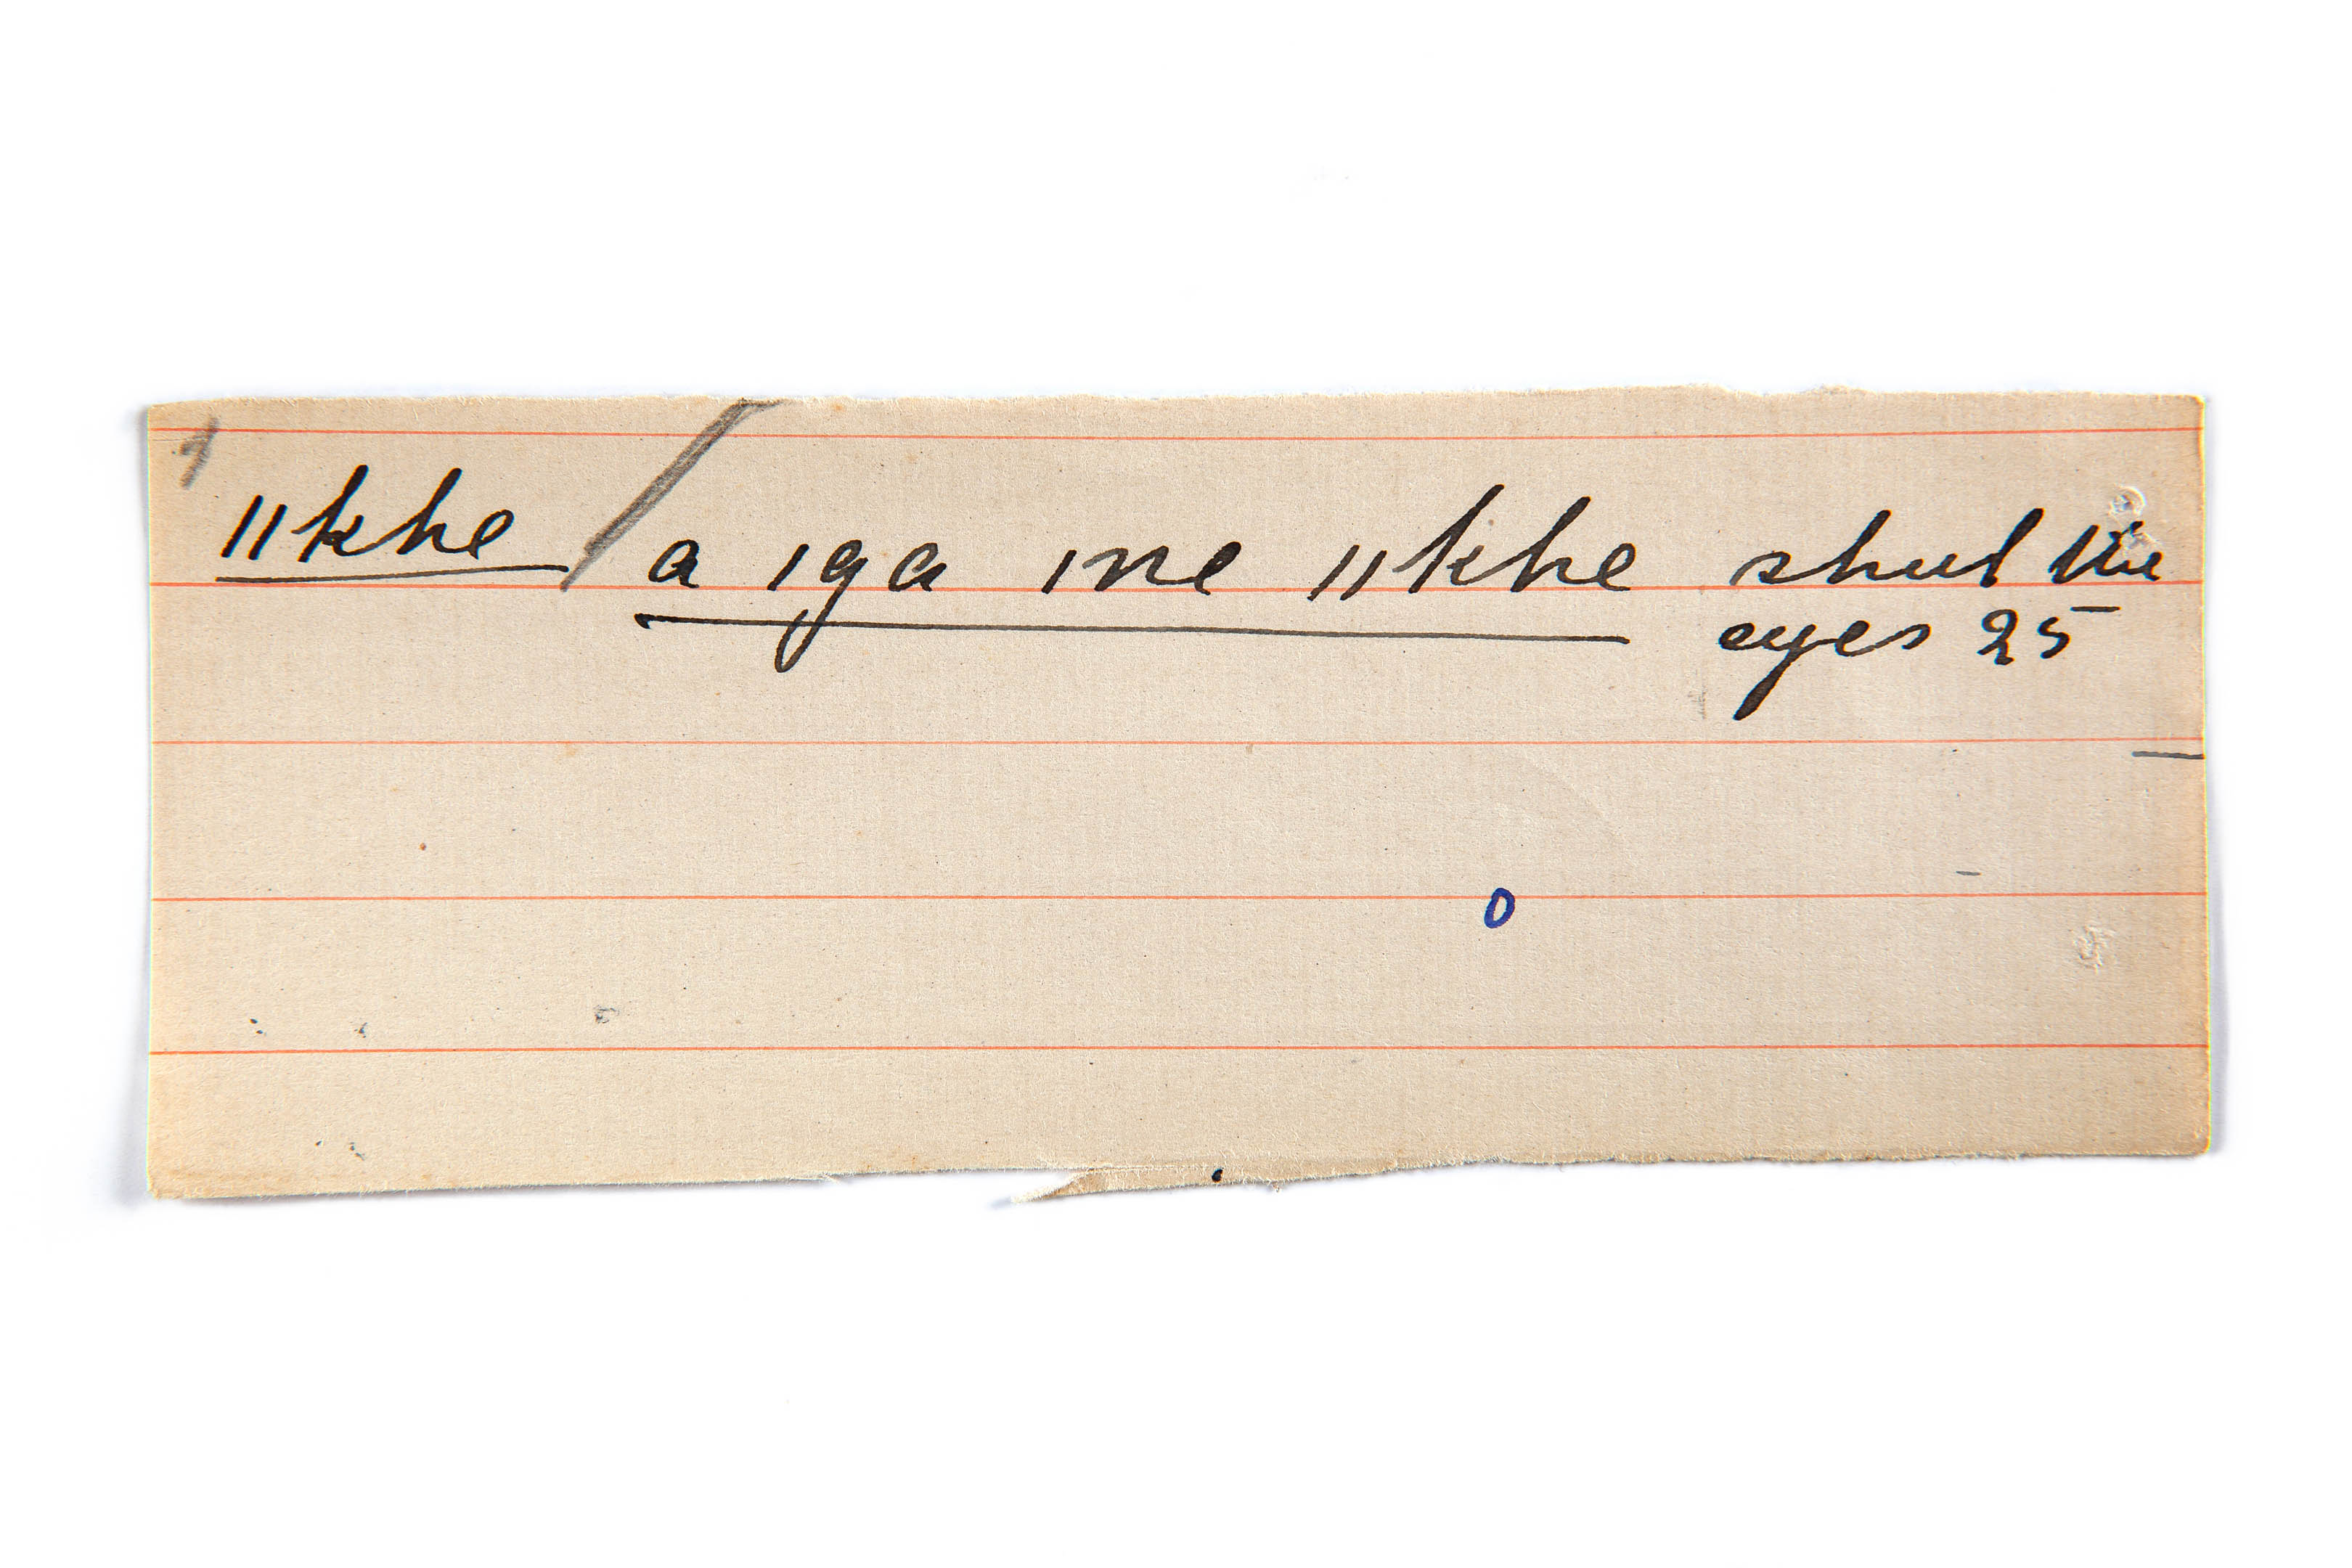 ǁkhe / a ǀga ǀne ǁkhe shut the
eyes 25